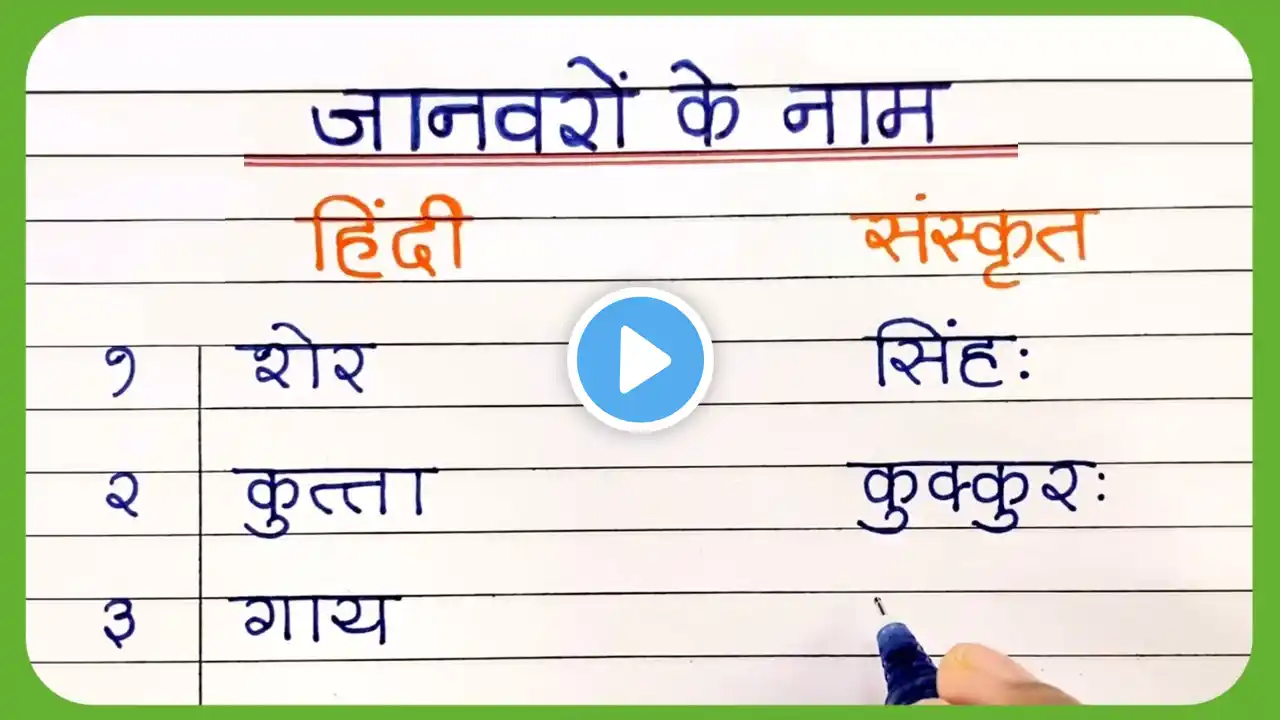 जानवरों के नाम
हिंदी संस्कृत
१ शेर सिंहः
२ कुत्ता कुक्कुरः
३ गाय